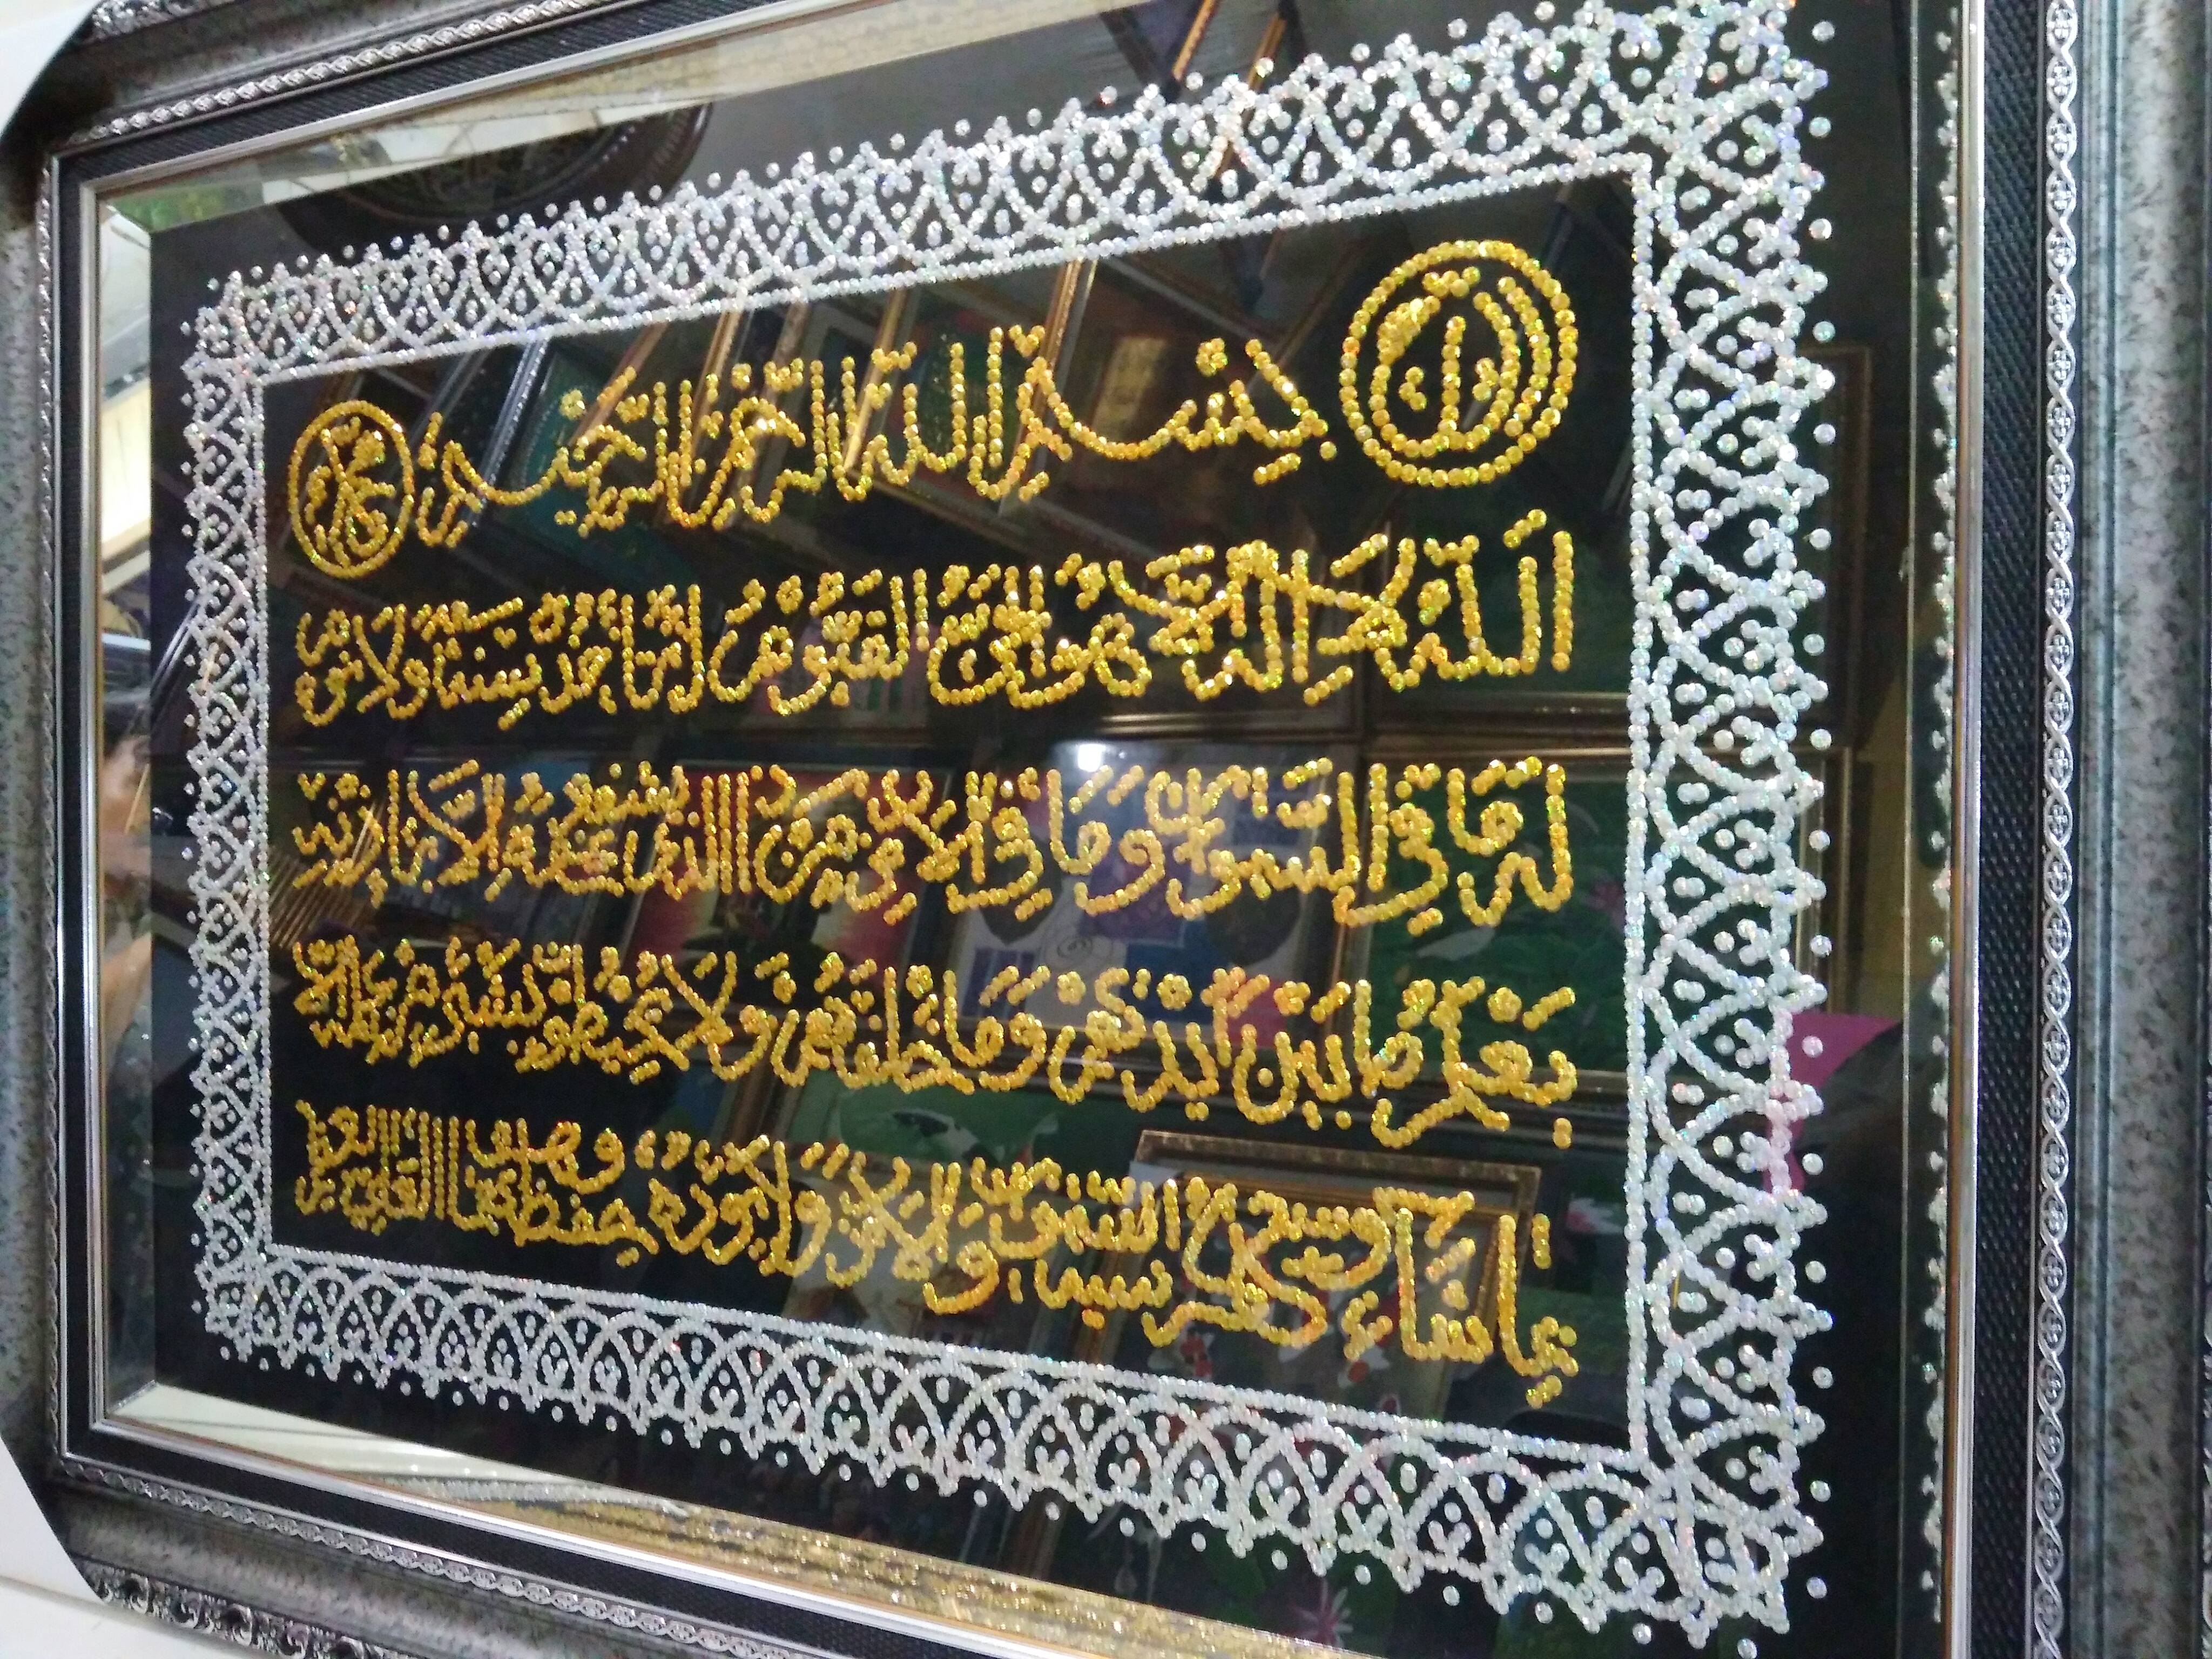 الله بسم الله الرحمن الرحيم محمد
الله لا إله إلا هو الحي القيوم لا تأخذه سنة ولا نوم
له ما في السموات وما في الأرض من ذا الذي يشفع عنده إلا بإذنه
يعلم ما بين أيديهم وما خلفهم ولا يحيطون بشيء من علمه إلا
بما شاء وسع كرسيه السموات والأرض ولا يؤده حفظهما وهو العلي العظيم